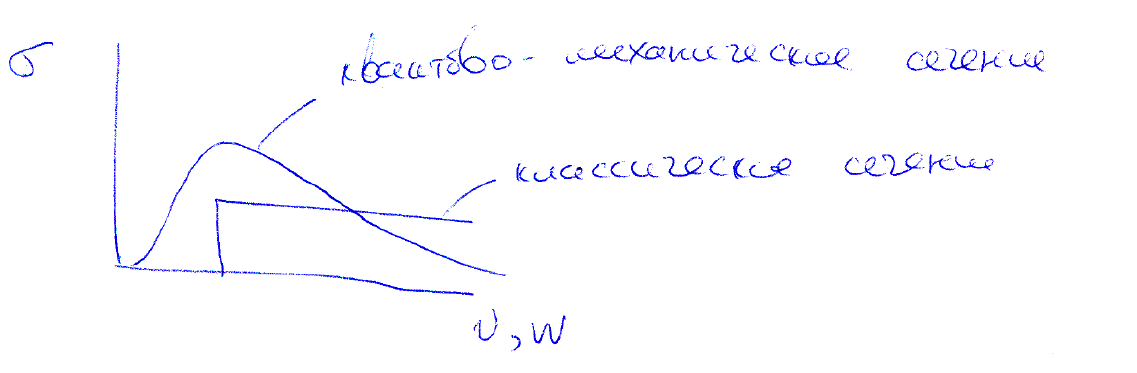 σ
квантово-механическое сечение
классическое сечение
υ, w